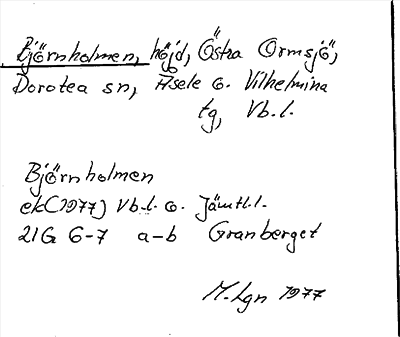 Björnholmen, höjd, Östra Ormsjö,
Dorotea sn, Åsele o. Vilhelmina
tg, Vb.l.
Björnholmen
ek(1977) Vb.l. o. Jämtl.l.
21G 6-7 a-b Granberget
M. Lgn 1977